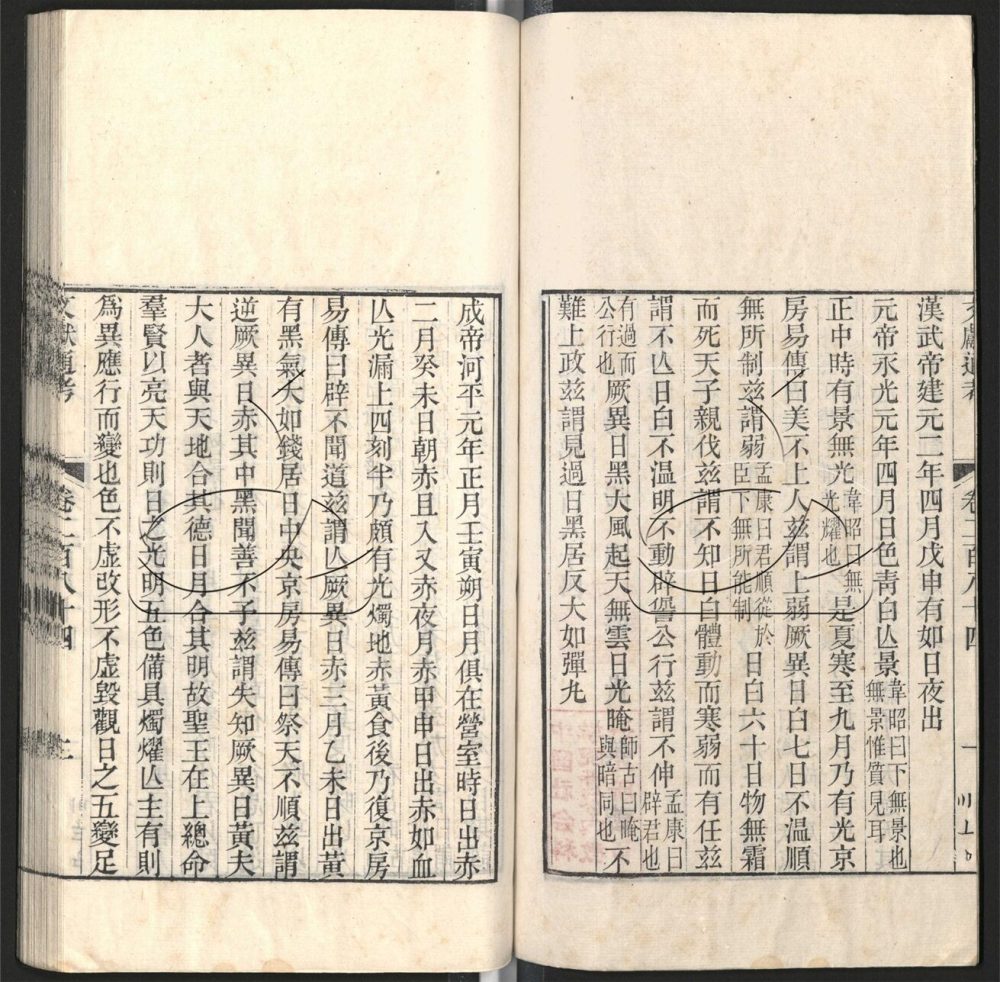 文獻通考 卷二百八十四
漢武帝建元二年四月戊申有如日夜出
元帝永光元年四月日色青白亾景韋昭曰下無景也無景惟質見耳
正中時有景無光韋昭曰無光耀也是夏寒至九月乃有光京
房易傳曰美不上人茲謂上弱厥異日白七日不溫順
無所制茲謂弱孟康曰君順從於臣下無所能制日白六十日物無霜
而死天子親伐茲謂不知日白體動而寒弱而有任茲
謂不亾日白不溫明不動辟諐公行茲謂不伸孟康曰辟君也
有過而公行也厥異日黑大風起天無雲日光晻師古曰晻與暗同也不
難上政茲謂見過日黑居仄大如彈丸
成帝河平元年正月壬寅朔日月俱在營室時日出赤
二月癸未日朝赤且入又赤夜月赤甲申日出赤如血
亾光漏上四刻半乃頗有光燭地赤黃食後乃復京房
易傳曰辟不聞道茲謂亾厥異日赤三月乙未日出黃
有黑氣大如錢居日中央京房易傳曰祭天不順茲謂
逆厥異日赤其中黑聞善不予茲謂失知厥異日黃夫
大人者與天地合其德日月合其明故聖王在上總命
羣賢以亮天功則日之光明五色備具燭燿亾主有則
爲異應行而變也色不虛改形不虛毀觀日之五變足
文獻通考 卷二百八十四